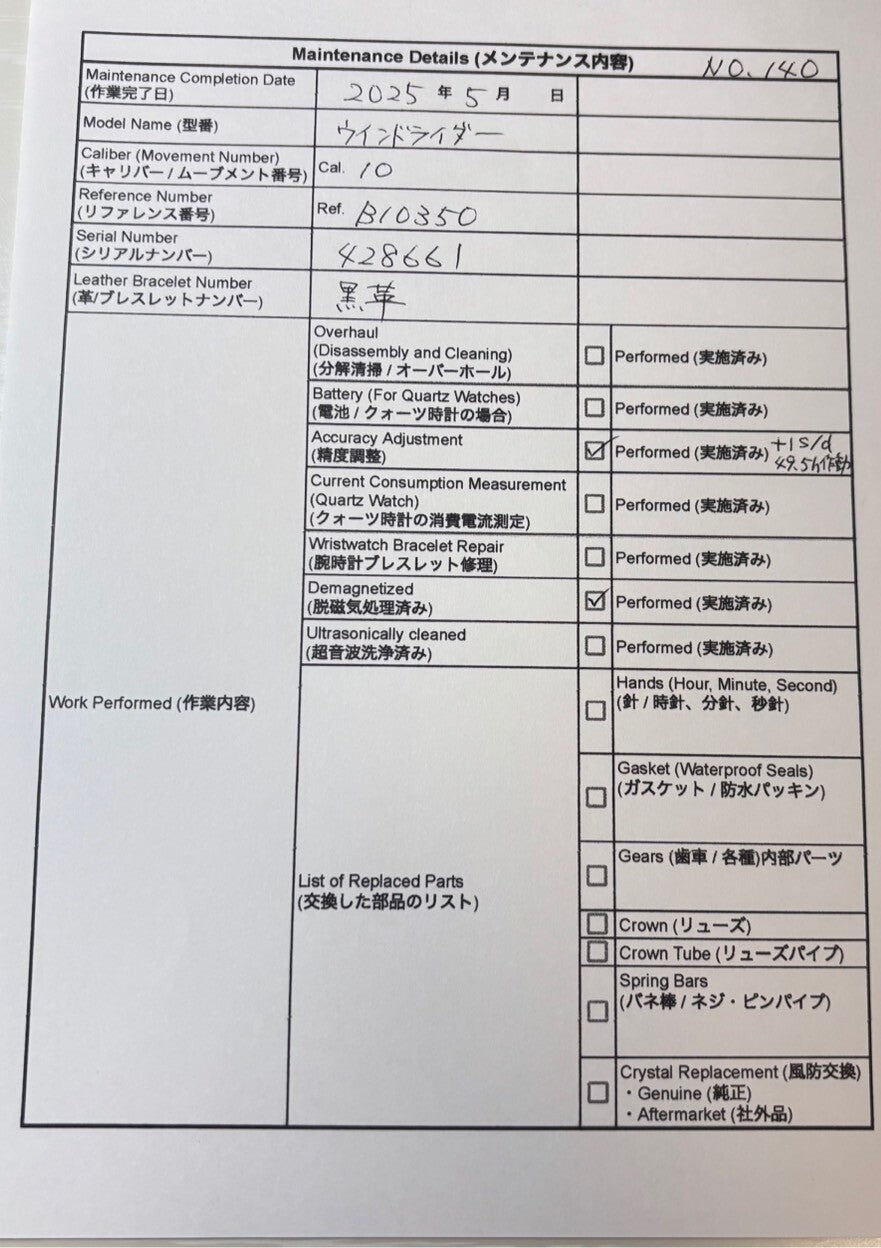 Maintenance Details (メンテナンス内容) NO.140
Maintenance Completion Date
(作業完了日)
2025 年 5 月 日
Model Name (型番)
ウインドライダー
Caliber (Movement Number)
(キャリバー / ムーブメント番号)
Cal. 10
Reference Number
(リファレンス番号)
Ref. B10350
Serial Number
(シリアルナンバー)
428661
Leather Bracelet Number
(革/ブレスレットナンバー)
黒革
Work Performed (作業内容)
Overhaul
(Disassembly and Cleaning)
(分解清掃 / オーバーホール)
Performed (実施済み)
Battery (For Quartz Watches)
(電池 / クォーツ時計の場合)
Performed (実施済み)
Accuracy Adjustment
(精度調整)
Performed (実施済み) +1s/d
49.5h作動
Current Consumption Measurement
(Quartz Watch)
(クォーツ時計の消費電流測定)
Performed (実施済み)
Wristwatch Bracelet Repair
(腕時計ブレスレット修理)
Performed (実施済み)
Demagnetized
(脱磁気処理済み)
Performed (実施済み)
Ultrasonically cleaned
(超音波洗浄済み)
Performed (実施済み)
List of Replaced Parts
(交換した部品のリスト)
Hands (Hour, Minute, Second)
(針 / 時針、分針、秒針)
Gasket (Waterproof Seals)
(ガスケット / 防水パッキン)
Gears (歯車 / 各種)内部パーツ
Crown (リューズ)
Crown Tube (リューズパイプ)
Spring Bars
(バネ棒 / ネジ・ピンパイプ)
Crystal Replacement (風防交換)
・Genuine (純正)
・Aftermarket (社外品)